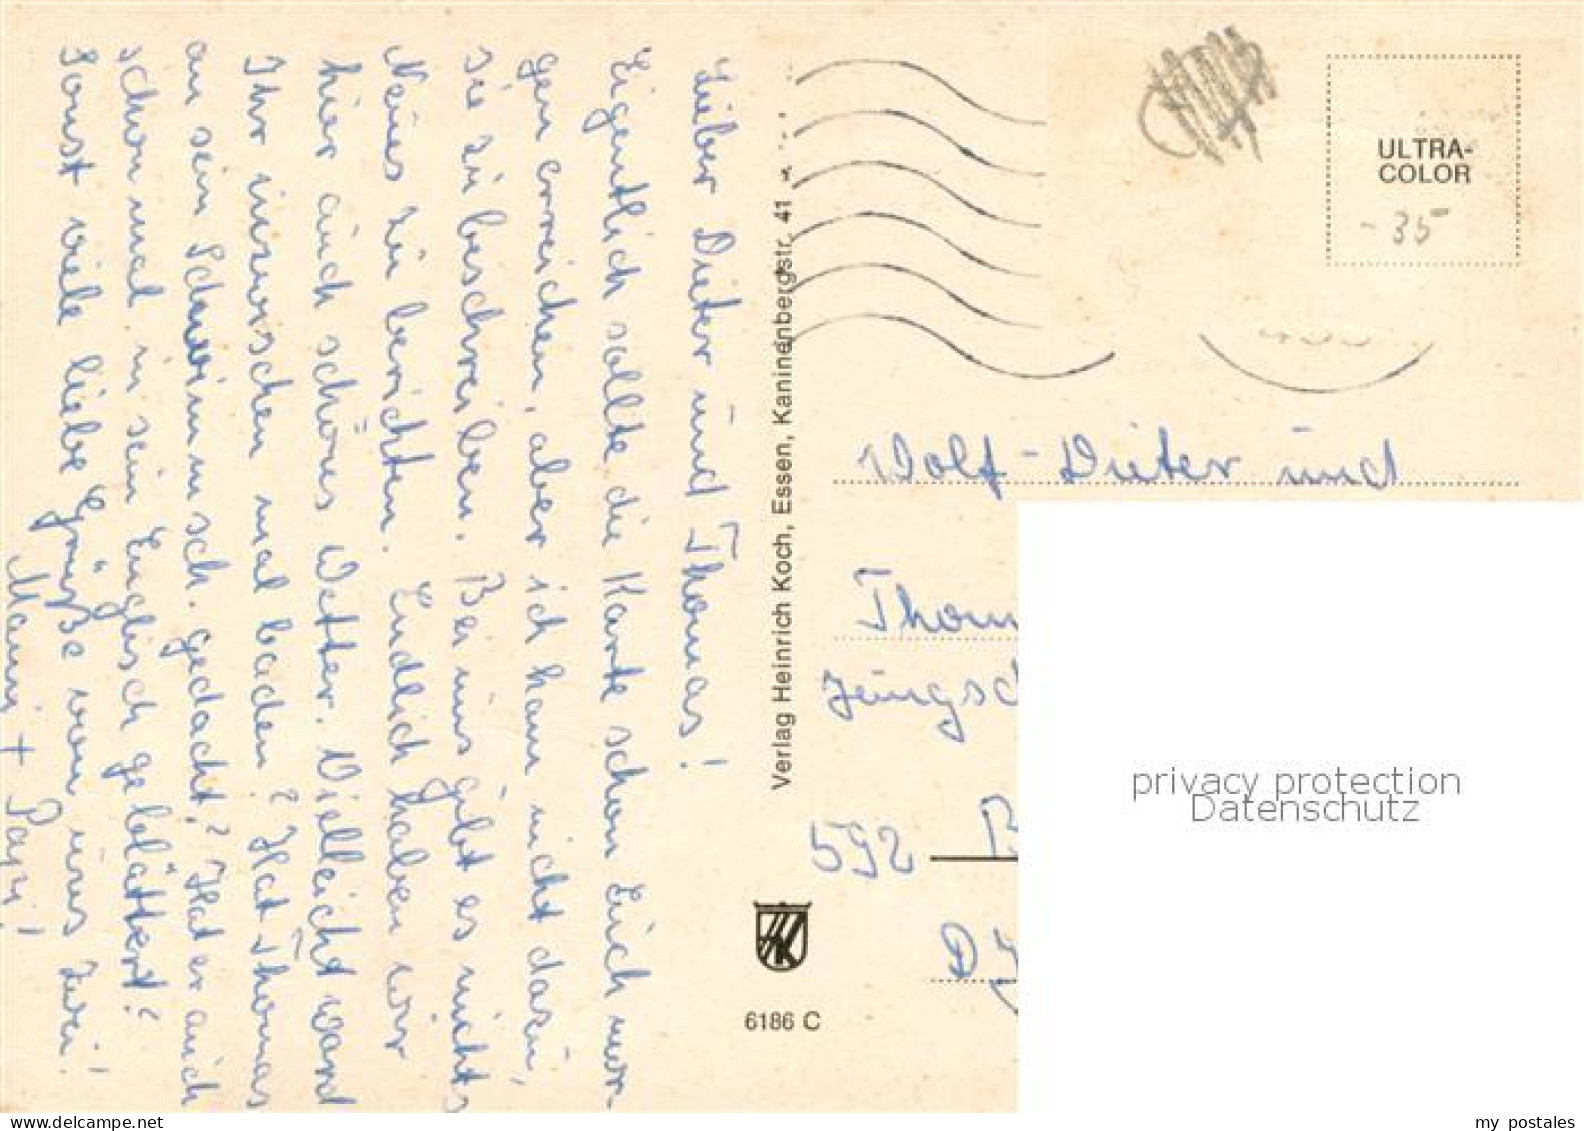 Lieber Dieter und Thomas!
Eigentlich sollte die Karte schon Euch mor-
gen erreichen, aber ich kam nicht dazu,
sie zu beschreiben. Bei uns gibt es nichts
Neues zu berichten. Endlich haben wir
hier auch schönes Wetter. Vielleicht ward
Ihr inzwischen mal baden? Hat Thomas
an sein Schwimmsch. gedacht? Hat er auch
schon mal in sein Englisch geblättert?
Sonst viele liebe Grüße von uns Zwei!
Mami + Papi!
Verlag Heinrich Koch, Essen, Kaninenbergstr. 41
6186 C
ULTRA-
COLOR
- 35
Wolf-Dieter und
Thom
Jungsc
592 B
privacy protection
Datenschutz
my postales